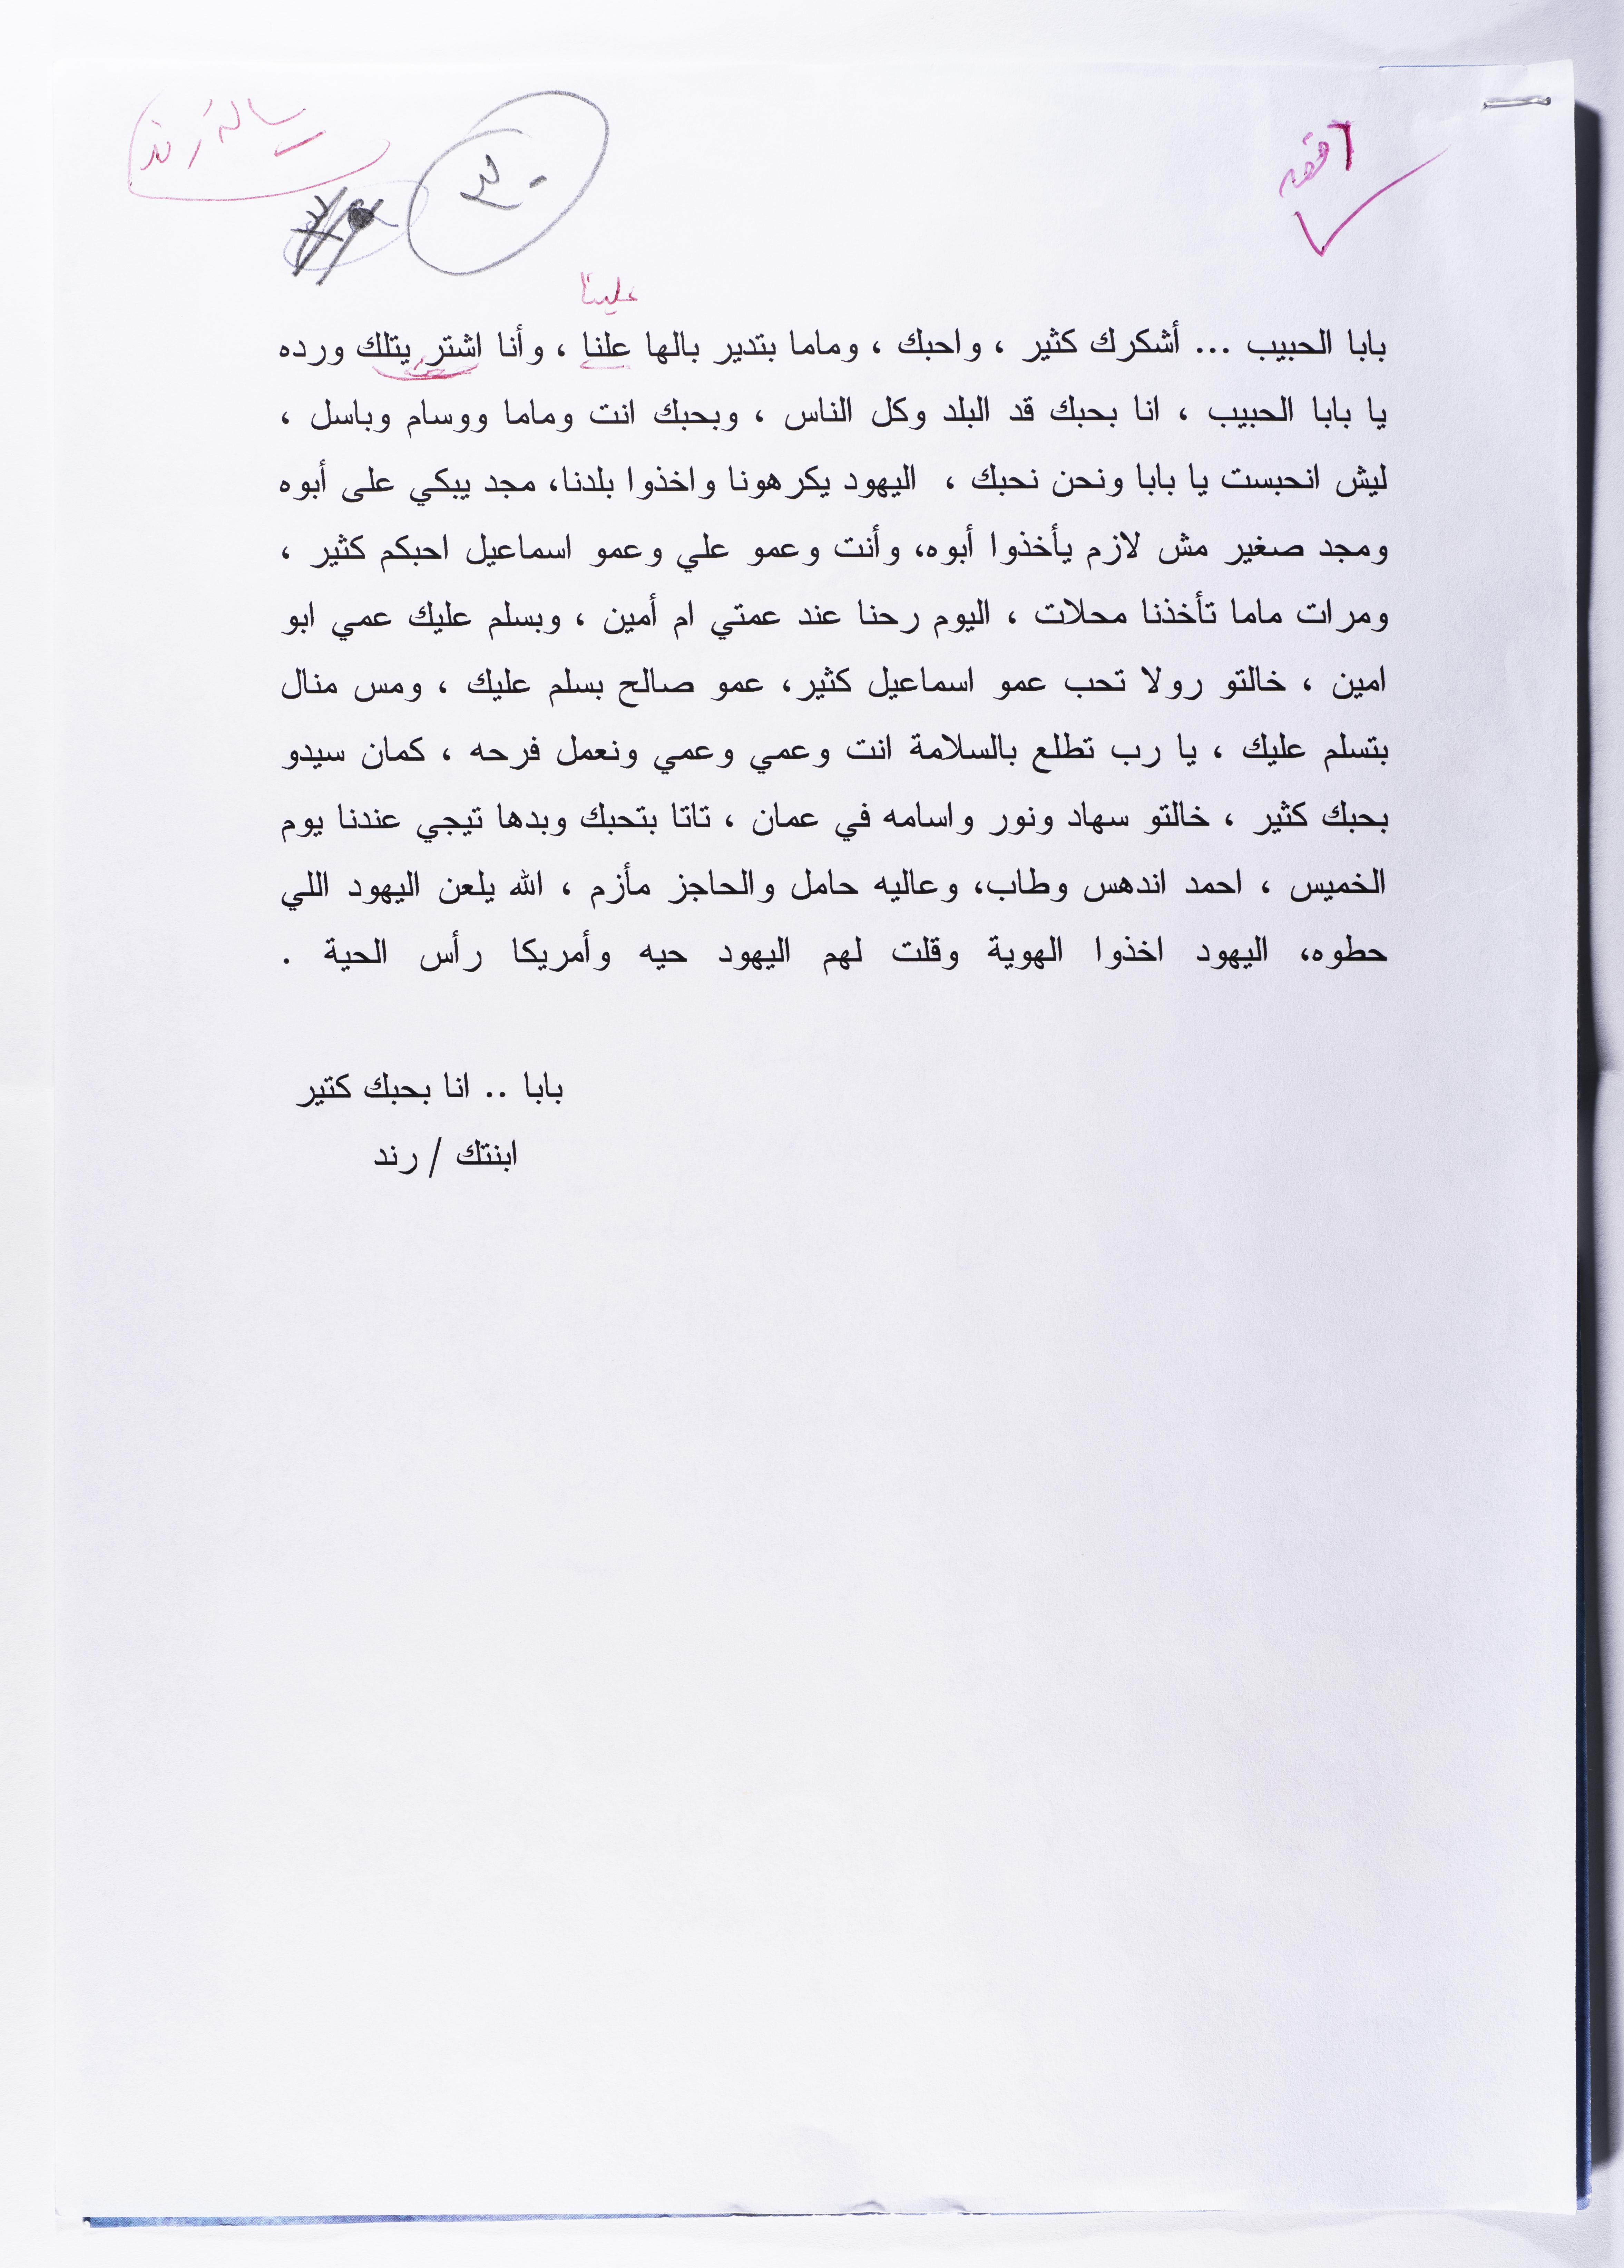 رسالة رند
٣٠
علينا
بابا الحبيب ... أشكرك كثير ، واحبك ، وماما بتدير بالها علنا ، وأنا اشتر يتلك ورده
يا بابا الحبيب ، انا بحبك قد البلد وكل الناس ، وبحبك انت وماما ووسام وباسل ،
ليش انحبست يا بابا ونحن نحبك ، اليهود يكرهونا واخذوا بلدنا، مجد يبكي على أبوه
ومجد صغير مش لازم يأخذوا أبوه، وأنت وعمو علي وعمو اسماعيل احبكم كثير ،
ومرات ماما تأخذنا محلات ، اليوم رحنا عند عمتي ام أمين ، وبسلم عليك عمي ابو
امين ، خالتو رولا تحب عمو اسماعيل كثير، عمو صالح بسلم عليك ، ومس منال
بتسلم عليك ، يا رب تطلع بالسلامة انت وعمي وعمي ونعمل فرحه ، كمان سيدو
بحبك كثير ، خالتو سهاد ونور واسامه في عمان ، تاتا بتحبك وبدها تيجي عندنا يوم
الخميس ، احمد اندهس وطاب، وعاليه حامل والحاجز مأزم ، الله يلعن اليهود اللي
حطوه، اليهود اخذوا الهوية وقلت لهم اليهود حيه وأمريكا رأس الحية .
بابا .. انا بحبك كتير
ابنتك / رند